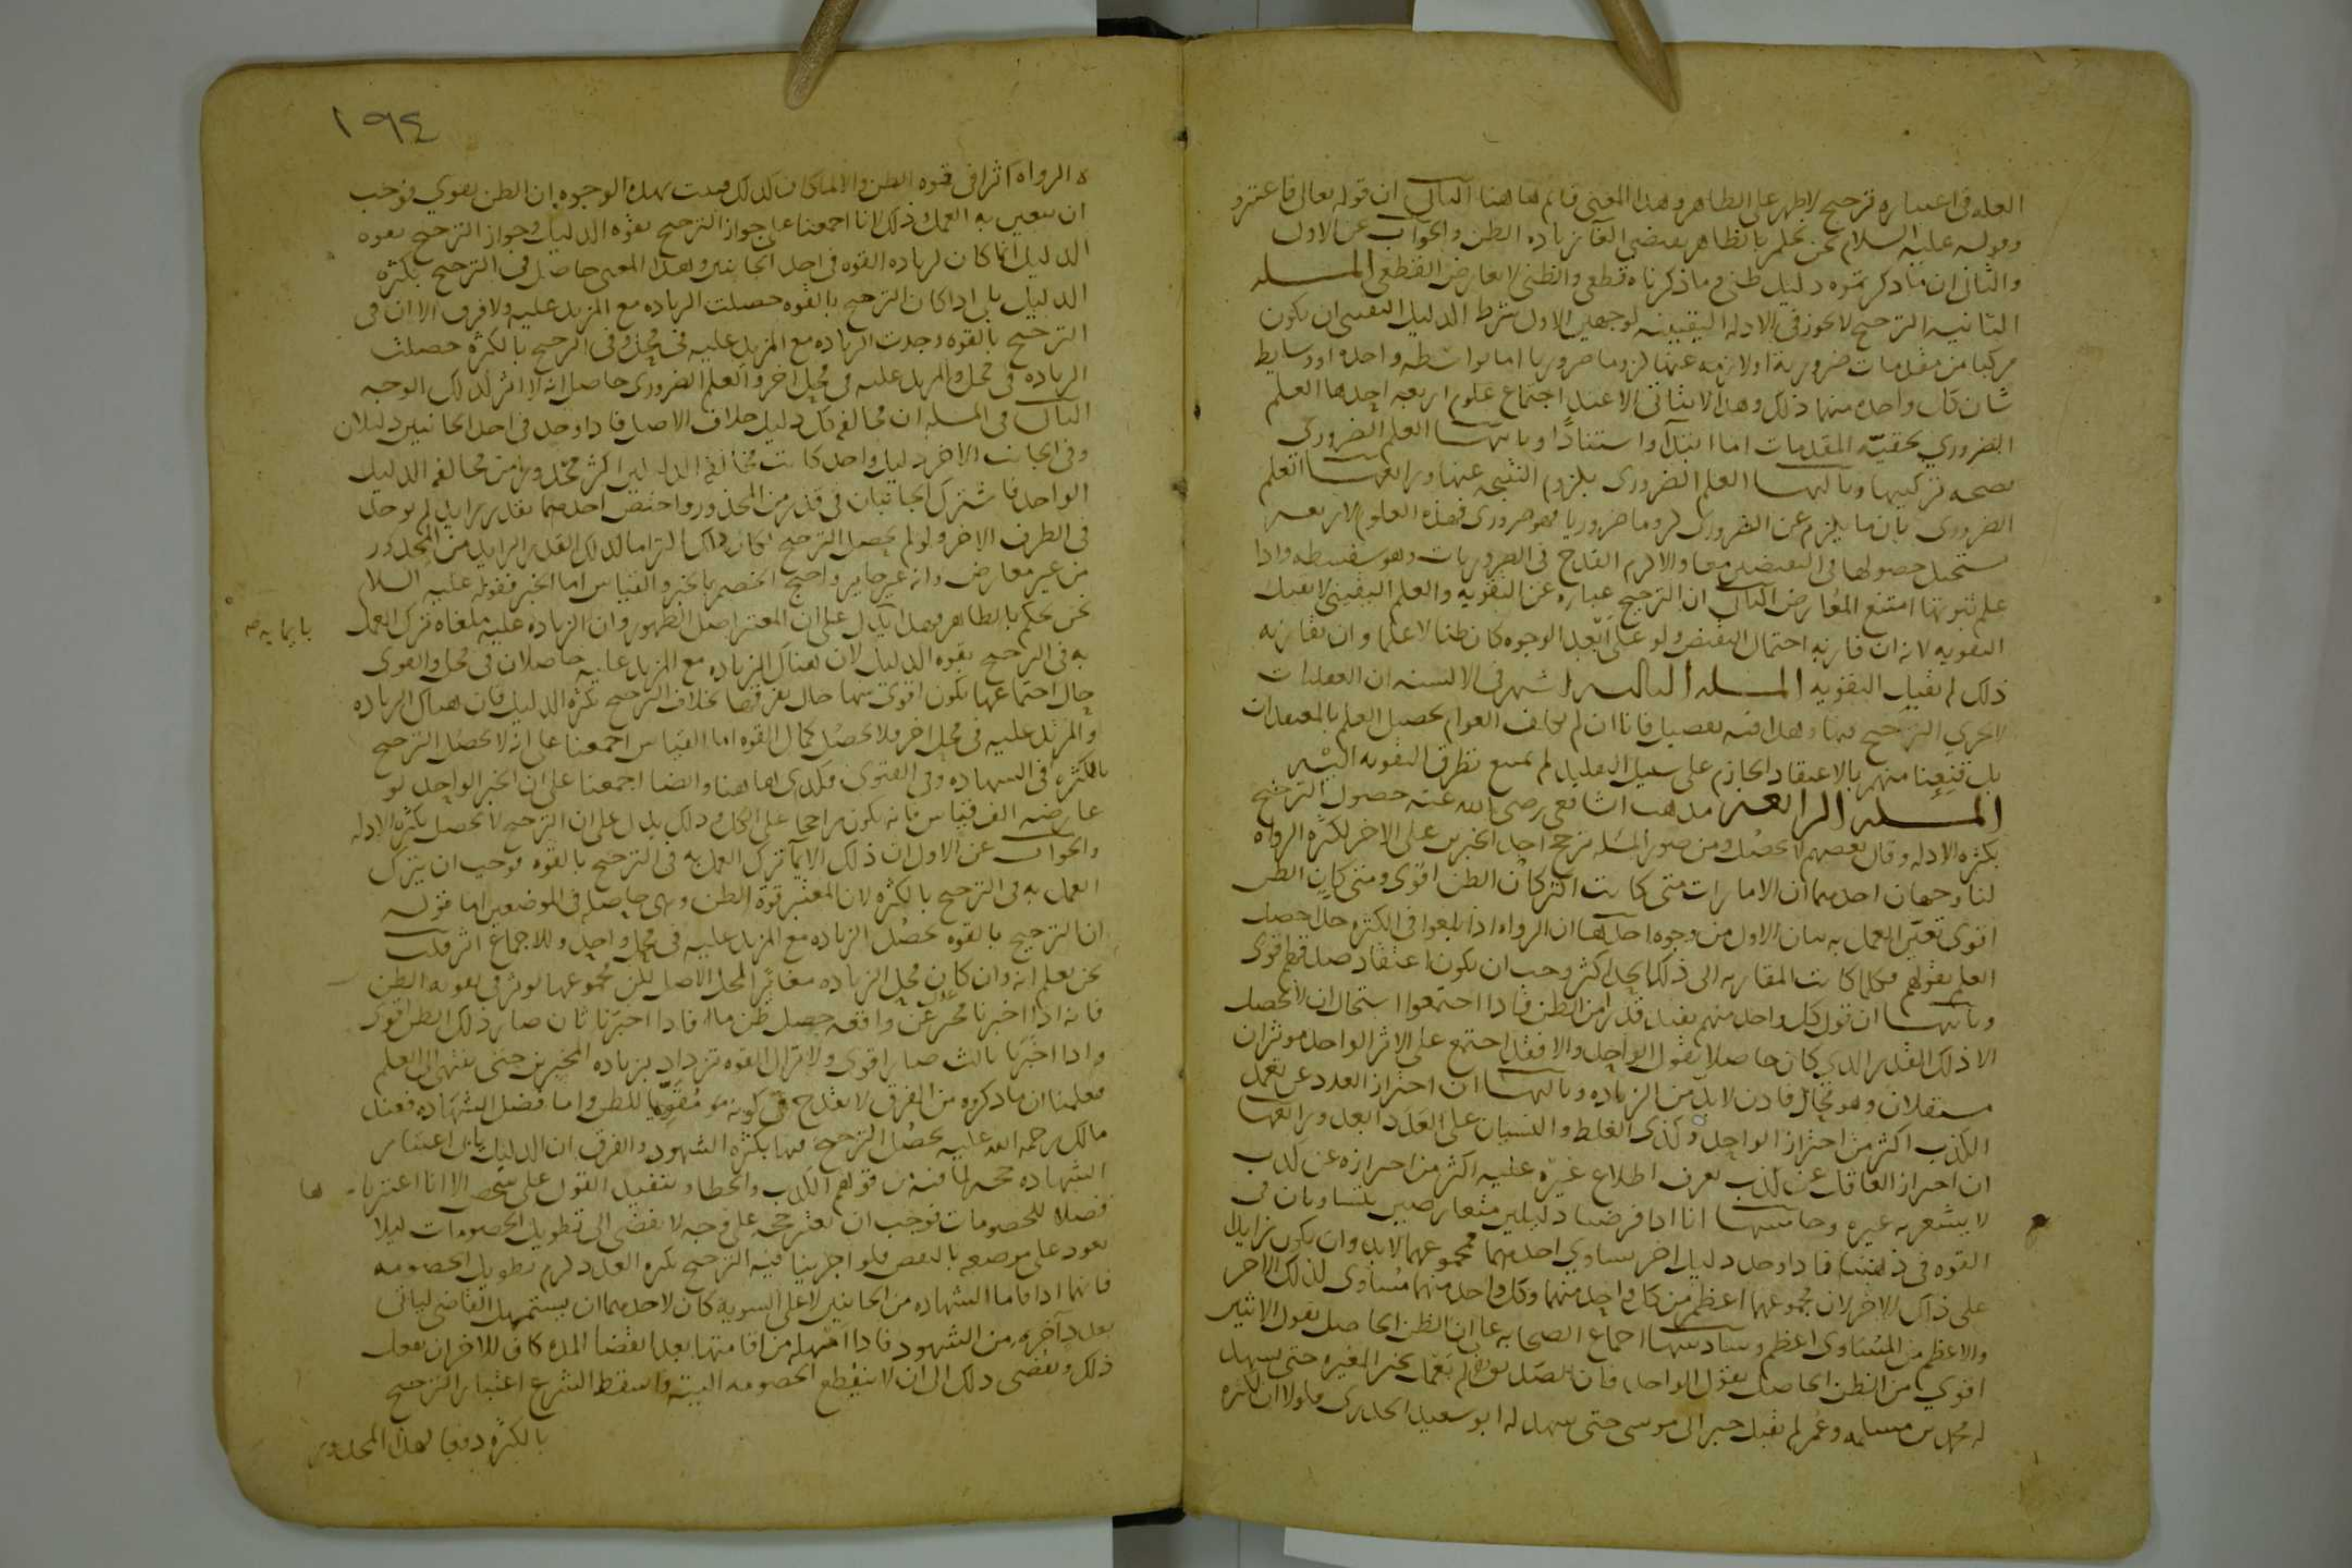 العله في اعتباره ترجيح الاظهر على الظاهر وهذا المعنى قائم هاهنا الثاني ان قوله تعالى فاعتبروا
وقوله عليه السلام نحن نحكم بالظاهر يقتضي الغا زياده الظن والجواب عن الاول
والثاني ان ما ذكرتموه دليل ظني وما ذكرناه قطعي والظني لا يعارض القطعي المسله
الثانيه الترجيح لا يجوز في الادله اليقينيه لوجهين الاول شرط الدليل اليقيني ان يكون
مركبا من مقدمات ضروريه او لازمه عنها لزوما ضروريا اما بواسطه واحده او وسايط
شان كل واحده منها ذلك وهذا لا يتاتى الا عند اجتماع علوم اربعه احدها العلم
الضروري بحقيّه المقدمات اما ابتدآ او استنادًا وثانيها العلم الضروري
بصحه تركيبها وثالثها العلم الضروري بلزوم النتيجه عنها ورابعها العلم
الضروري بان ما يلزم عن الضروري لزوما ضروريا فهو ضروري فهذه العلوم الاربعه
تستحيل حصولها في النقيضين معا والا لزم القدح في الضروريات وهو سفسطه واذا
علم ثبوتها امتنع التعارض الثاني ان الترجيح عباره عن التقويه والعلم اليقيني لا يقبل
التقويه لانه ان قارنه احتمال النقيض ولو على ابعد الوجوه كان ظنا لا علما وان لم يقارنه
ذلك لم يقبل التقويه المسله الثالثه اشتهر في الالسنه ان العقليات
لا يجري الترجيح فيها وهذا فيه تفصيل فانا ان لم نكلف العوام تحصيل العلم بالمعتقدات
بل قنعنا منهم بالاعتقاد الجازم على سبيل التقليد لم يمتنع تطرق التقويه اليه
المسله الرابعه مذهب الشافعي رضي الله عنه حصول الترجيح
بكثره الادله وقال بعضهم لا يحصل ومن صور المسله ترجيح احد الخبرين على الاخر لكثره الرواه
لنا وجهان احدهما ان الامارات متى كانت اكثر كان الظن اقوى ومتى كان الظن
اقوى تعيّن العمل به بيان الاول من وجوه احدها ان الرواه اذا بلغوا في الكثره حدا حصل
العلم بقولهم وكلما كانت المقاربه الى ذلك الحد اكثر وجب ان يكون اعتقاد صدقهم اقوى
وثانيها ان قول كل واحد منهم يفيد قدرا من الظن فاذا اجتمعوا استحال ان لا يحصل
الا ذلك القدر الذي كان حاصلا بقول الواحد والا فقد اجتمع على الاثر الواحد موثران
مستقلان وهو محال فاذن لا بد من الزياده وثالثها ان احتراز العدد عن تعمد
الكذب اكثر من احتراز الواحد وكذى الغلط والنسيان على العدد ابعد ورابعها
ان احتراز العاقل عن كذب يعرف اطلاع غيره عليه اكثر من احترازه عن كذب
لا يشعر به غيره وخامسها انا اذا فرضنا دليلين متعارضين يتساويان في
القوه في ذهننا فاذا وجد دليل اخر يساوي احدهما فمجموعهما لا بد وان يكون زايدا
على ذلك الاخر لان مجموعهما اعظم من كل واحد منهما وكل واحد منهما مساوي لذلك الاخر
والاعظم من المساوي اعظم وسادسها اجماع الصحابه على ان الظن الحاصل بقول الاثنين
اقوى من الظن الحاصل بقول الواحد فان الصديق لم يعمل بخبر المغيره حتى شهد
له محمد بن مسلمه وعمر لم يقبل خبر ابي موسى حتى شهد له ابو سعيد الخدري فلولا ان كثره
١٩٤
ه الرواه اثرا في قوه الظن والا لما كان كذلك فثبت بهذه الوجوه ان الظن يقوي فوجب
ان يتعين به العمل وذلك لانا اجمعنا على جواز الترجيح بقوه الدليل وجواز الترجيح بقوه
الدليل انما كان لزياده القوه في احد الجانبين وهذا المعنى حاصل في الترجيح بكثره
الدليل بلى اذا كان الترجيح بالقوه حصلت الزياده مع المزيد عليه ولا فرق الا ان في
الترجيح بالقوه وجدت الزياده مع المزيد عليه في محل وفي الترجيح بالكثره حصلت
الزياده في محل والمزيد عليه في محل اخر والعلم الضروري حاصل انه لا اثر لذلك الوجه
الثاني في المسله ان مخالفه كل دليل خلاف الاصل فاذا وجد في احد الجانبين دليلان
وفي الجانب الاخر دليل واحد كانت مخالفه الدليلين اكثر محذورا من مخالفه الدليل
الواحد فاشترك الجانبان في قدر من المحذور واختص احدهما بقدر زايد لم يوجد
في الطرف الاخر ولو لم يحصل الترجيح لكان ذلك التزاما لذلك القدر الزايد من المحذور
من غير معارض وانه غير جايز واحتج الخصم بالخبر والقياس اما الخبر فقوله عليه السلام
نحن نحكم بالظاهر وهذا يدل على ان المعتبر اصل الظهور وان الزياده عليه ملغاه ترك العمل
به في الترجيح بقوه الدليل لان هناك الزياده مع المزيد عليه حاصلان في محل والقوى
حال اجتماعها تكون اقوى منها حال تفرقها بخلاف الترجيح بكثره الدليل فان هناك الزياده
والمزيد عليه في محل اخر فلا يحصل كمال القوه اما القياس اجمعنا على انه لا يحصل الترجيح
بالكثره في الشهاده وفي الفتوى فكذى هاهنا وايضا اجمعنا على ان الخبر الواحد لو
عارضه الف قياس فانه يكون راجحا على الكل وذلك يدل على ان الترجيح لا يحصل بكثره الادله
والجواب عن الاول ان ذلك الايما ترك العمل به في الترجيح بالقوه فوجب ان يترك
العمل به في الترجيح بالكثره لان المعتبر قوة الظن وهي حاصله في الموضعين اما قوله
ان الترجيح بالقوه يحصل الزياده مع المزيد عليه في محل واحد وللاجماع اثر قلت
نحن نعلم انه وان كان محل الزياده مغايرا لمحل الاصل لكن مجموعهما يوثر في تقويه الظن
فانه اذا اخبرنا مخبر عدل عن واقعه حصل ظن ما فاذا اخبرنا ثان صار ذلك الظن اقوى
واذا اخبرنا ثالث صار اقوى ولا تزال القوه تزداد بزياده المخبرين حتى ينتهي الى العلم
فعلمنا ان ما ذكروه من الفرق لا يقدح في كونه مقويا للظن واما فصل الشهاده فعند
مالك رحمه الله عليه يحصل الترجيح فيها بكثره الشهود والفرق ان الدليل يابى اعتبار
الشهاده حجه لما فيه من توهم الكذب والخطا وتنفيذ القول على شخص الا انا اعتبرنا
فصلا للخصومات فوجب ان تعتبر حجه على وجه لا يفضى الى تطويل الخصومات ليلا
يعود على موضعه بالنقص فلو اجرينا فيه الترجيح بكثره العدد لزم تطويل الخصومه
فانهما اذا اقاما الشهاده من الجانبين لا على السويه كان لاحدهما ان يستمهل القاضي لياتي
بعدد اخر من الشهود فاذا امهله من اقامتها بعد انقضا المده كان للاخر ان يفعل
ذلك ويفضى ذلك الى ان لا ينقطع الخصومه البته فاسقط الشرع اعتبار الترجيح
بالكثره دفعا لهذا المحذور
بايمايه صه
ها